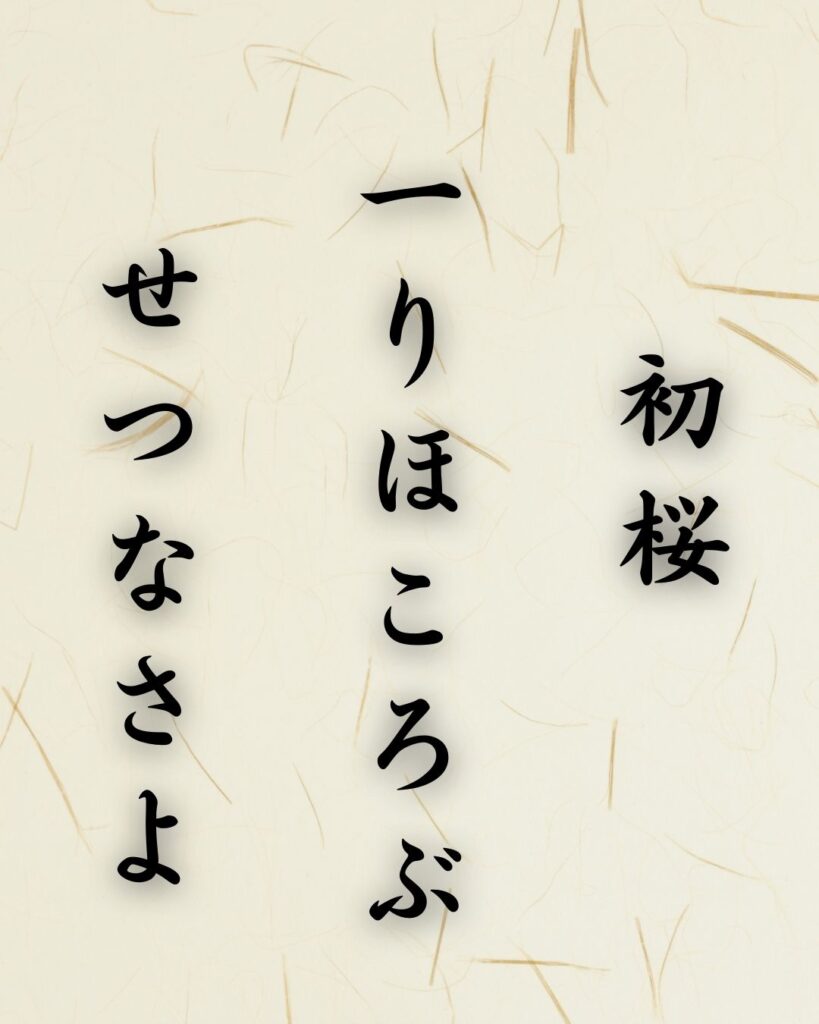 初桜
一りほころぶ
せつなさよ